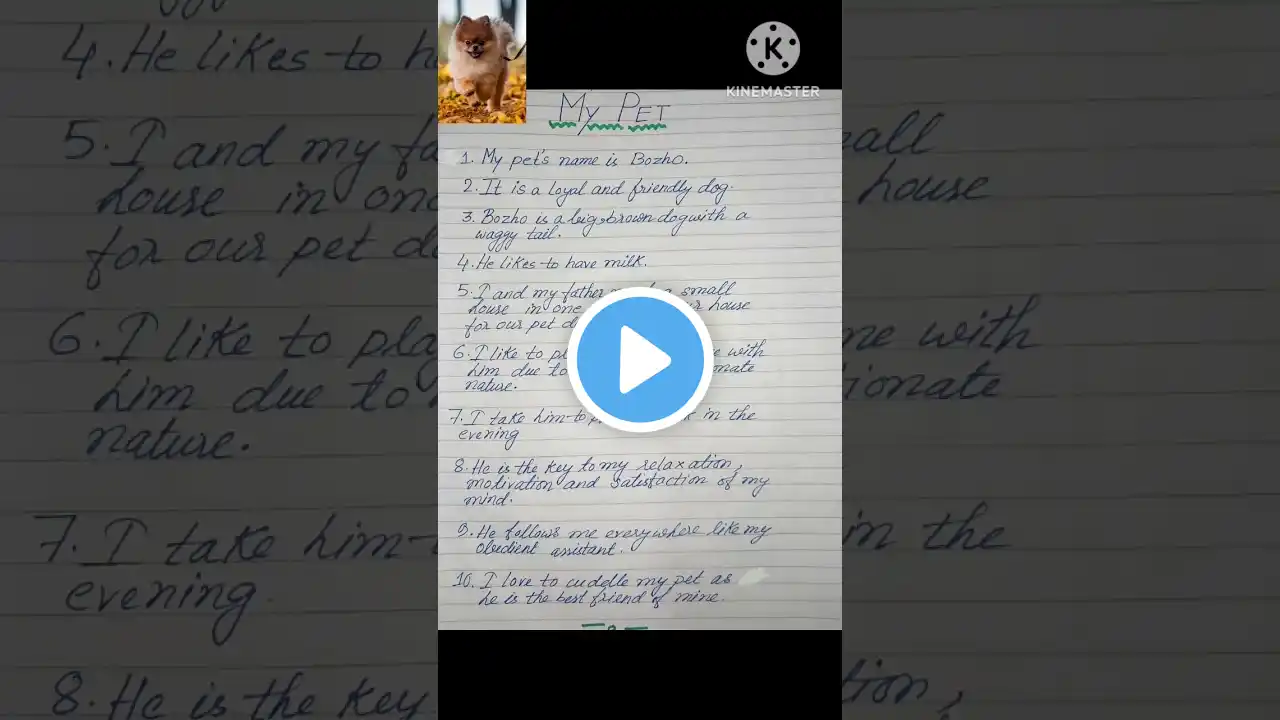 4. He likes to
5. I and my
house in one
for our pet
6. I like to
him due to
nature.
7. I take him
evening.
8. He is the key
K
KINEMASTER
My PET
1. My pet's name is Bozho.
2. It is a loyal and friendly dog.
3. Bozho is a big, brown dog with a
waggy tail.
4. He likes to have milk.
5. I and my father small
house in one house
for our pet
6. I like to with
him due to
nature.
7. I take him to in the
evening
8. He is the key to my relaxation,
motivation and satisfaction of my
mind.
9. He follows me everywhere like my
obedient assistant.
10. I love to cuddle my pet as
he is the best friend of mine.
house
with
in the